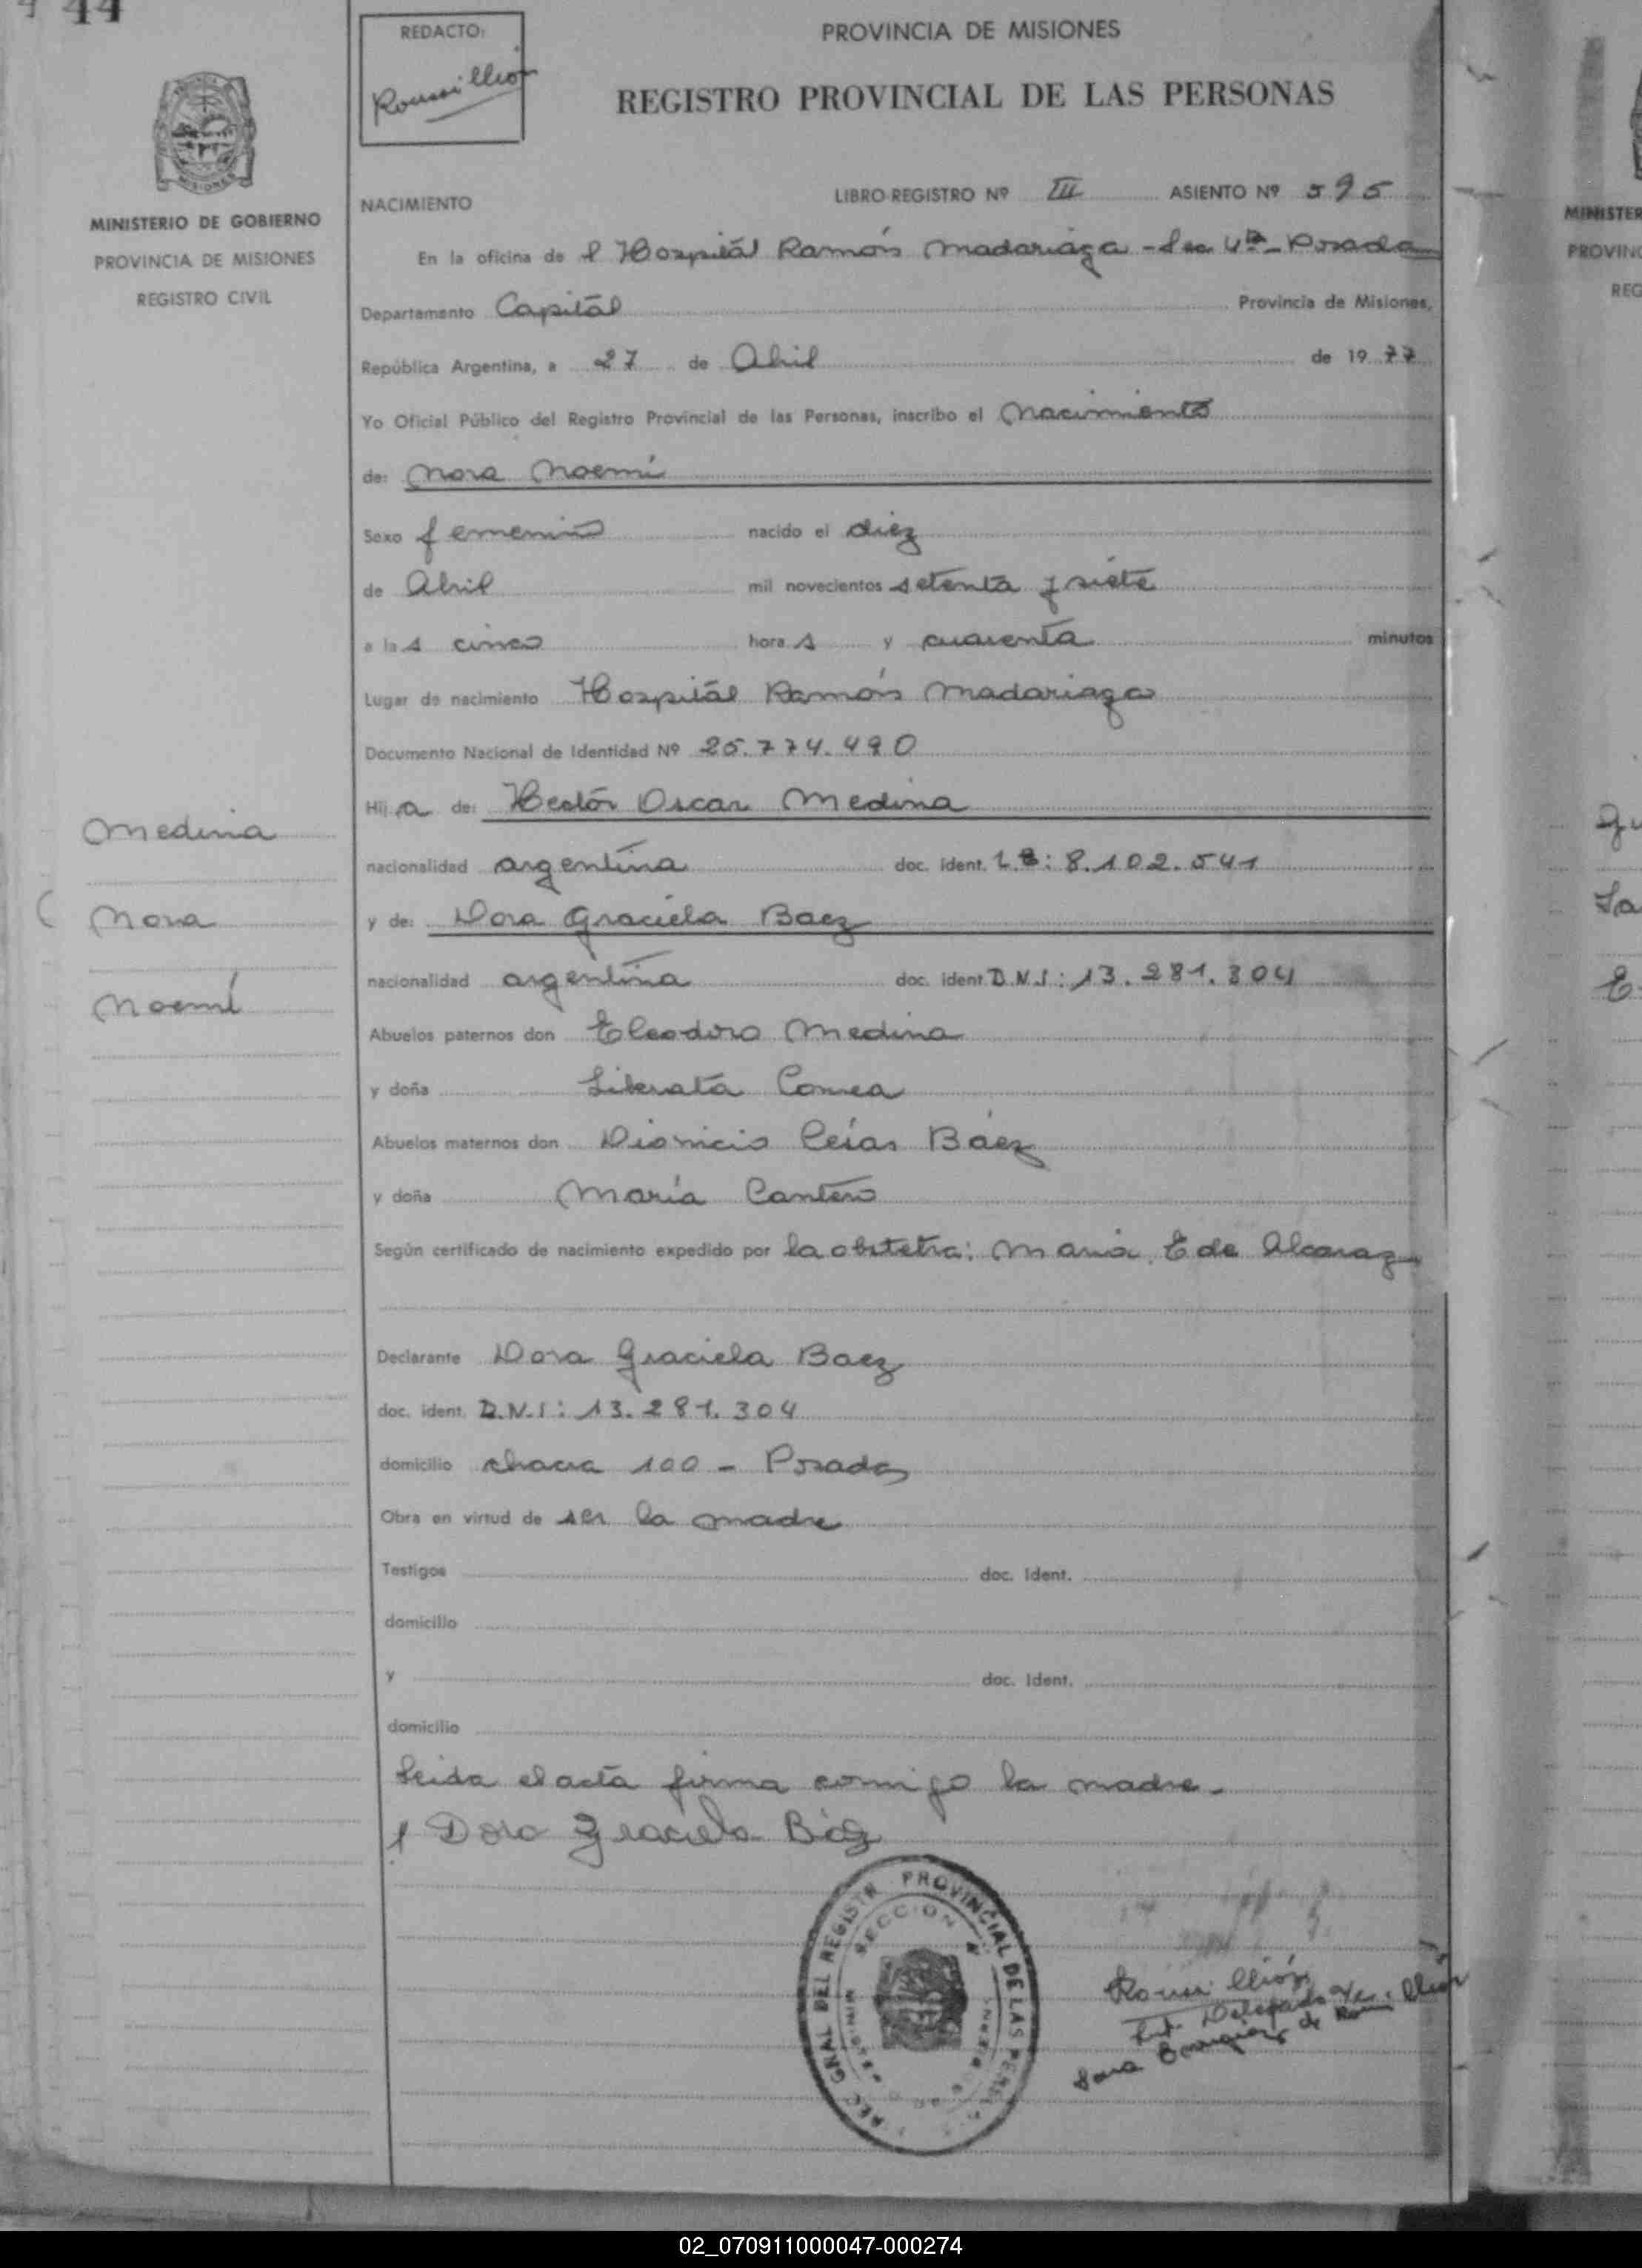 44
REDACTO:
Roussillion
PROVINCIA DE MISIONES
REGISTRO PROVINCIAL DE LAS PERSONAS
MISIONES
MINISTERIO DE GOBIERNO
PROVINCIA DE MISIONES
REGISTRO CIVIL
NACIMIENTO
LIBRO-REGISTRO Nº III ASIENTO Nº 595
En la oficina de l Hospital Ramón Madariaga - Sec 4ª - Posadas
Departamento Capital Provincia de Misiones,
República Argentina, a 27 de Abril de 19 77
Yo Oficial Público del Registro Provincial de las Personas, inscribo el Nacimiento
de: Nora Noemí
Sexo femenino nacido el diez
de Abril mil novecientos setenta y siete
a las cinco horas y cuarenta minutos
Lugar de nacimiento Hospital Ramón Madariaga
Documento Nacional de Identidad Nº 25.774.490
Hija de: Hector Oscar Medina
nacionalidad argentina doc. ident. L.E: 8.102.541
y de: Dora Graciela Baez
nacionalidad argentina doc. ident. D.N.I: 13.281.304
Abuelos paternos don Eleodoro Medina
y doña Liberata Correa
Abuelos maternos don Dionicio Báez
y doña María Cantero
Según certificado de nacimiento expedido por la obstetra: María E de Alcaraz
Declarante Dora Graciela Baez
doc. ident. D.N.I: 13.281.304
domicilio chacra 100 - Posadas
Obra en virtud de ser la madre
Testigos doc. Ident.
domicilio
y doc. Ident.
domicilio
Leida el acta firma conmigo la madre.
Dora Graciela Báez
Medina
Nora
Noemí
GRAL DEL REGISTR PROVINCIAL DE LAS PERS
SECCION 4
Roussillion
Delegada
Sara de
MINISTER
PROVINC
REG
02_070911000047-000274